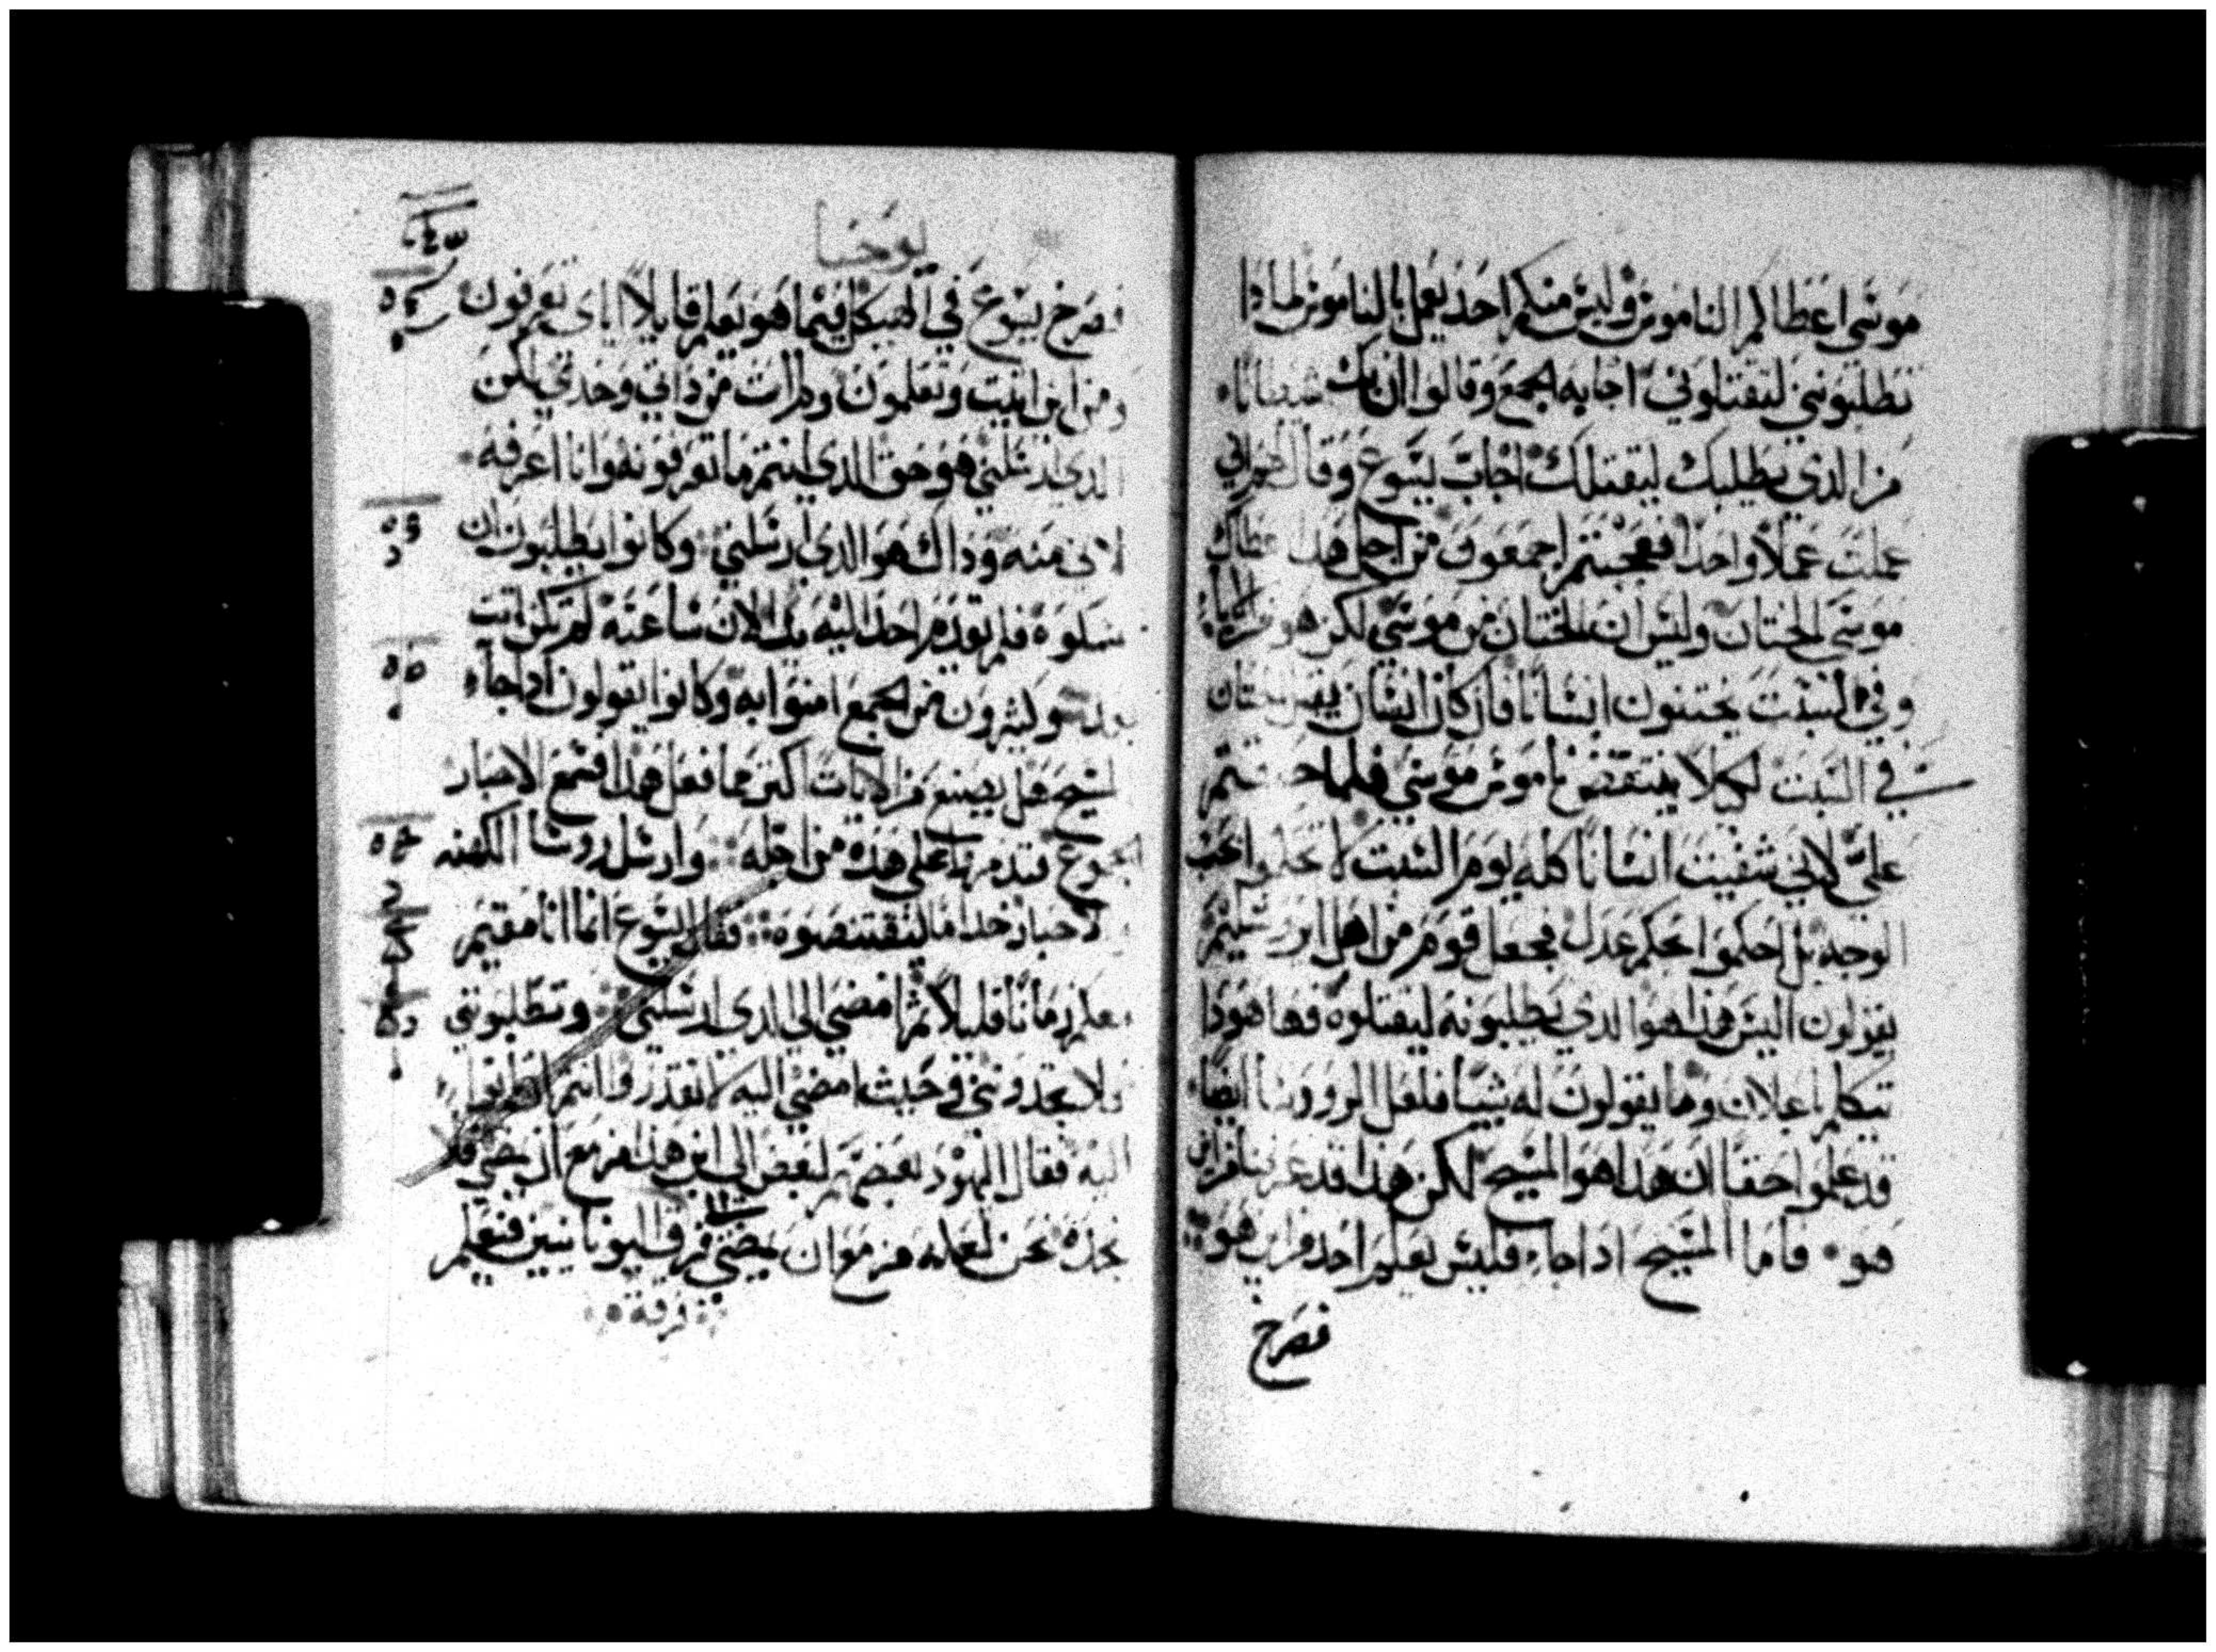 موسى اعطاكم الناموس وليس منكم احد يعمل بالناموس لماذا
تطلبونني لتقتلوني اجابه الجمع وقالوا ان بك شيطانا
من الذي يطلبك ليقتلك اجاب يسوع وقال لهم اني
عملت عملا واحدا فعجبتم اجمعون من اجل هدا اعطاكم
موسى الختان وليس ان الختان من موسى لكن هو من الاباء
وفي السبت يختنون انسانا فان كان انسان يقبل الختان
في السبت لكيلا ينتقض ناموس موسي فلماذا
علي لاني شفيت انسانا كله يوم السبت لا تحكموا بحسب
الوجه بل احكموا بحكم عدل فجعل قوم من اهل اورشليم
يقولون اليس هذا هوا الدي يطلبونه ليقتلوه فها هودا
يتكلم باعلان وما يقولون له شييا فلعل الروسا ايضا
قد علموا حقا ان هدا هو المسيح لكن هذا قد عرفنا من اين
هو فاما المسيح ادا جاء فليس يعلم احد من اين هو
فصرخ
يوحنا
فصرخ يسوع في الهيكل فيما هو يعلم قايلا اياى تعرفون
ومن اين انيت وتعلمون ولم ات من داتي وحدي لكن
الدي ارسلني هو حق الدي انتم ما تعرفونه وانا اعرفه
لاني منه وداك هو الدي ارسلني وكانوا يطلبون ان
يمسكوه فلم يقدم احد اليه يدا لان ساعته لم تكن اتت
بعد وكثيرون من الجمع امنوا به وكانوا يقولون ادا جاء
المسيح هل يصنع من الايات اكتر مما فعل هدا فسمع الاحبار
الجموع تتدمر علي هده من اجله وارسل روسا الكهنه
والاحبار خداما ليقتنصوه فقال يسوع انما انا مقيم
معكم زمانا قليلا ثم امضي الى الدي ارسلني وتطلبونني
فلا تجدونني وحيث امضي اليه لا تقدروا انتم
اليه فقال اليهود بعضهم لبعض الى اين هذا مزمع ان يمضي فلا
نجده نحن لعله مزمع ان يمضي فرق اليونانيين فيعلم
فرقة